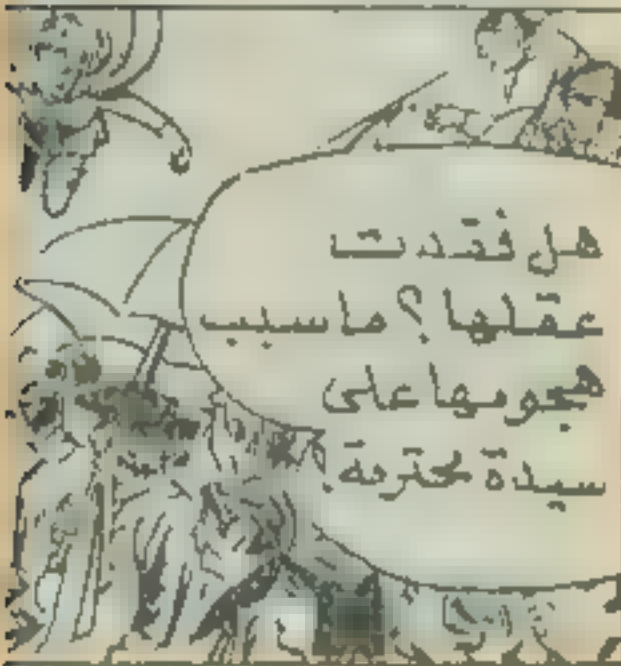 هل فقدت
عقلها؟ ما سبب
هجومها على
سيدة محترمة.